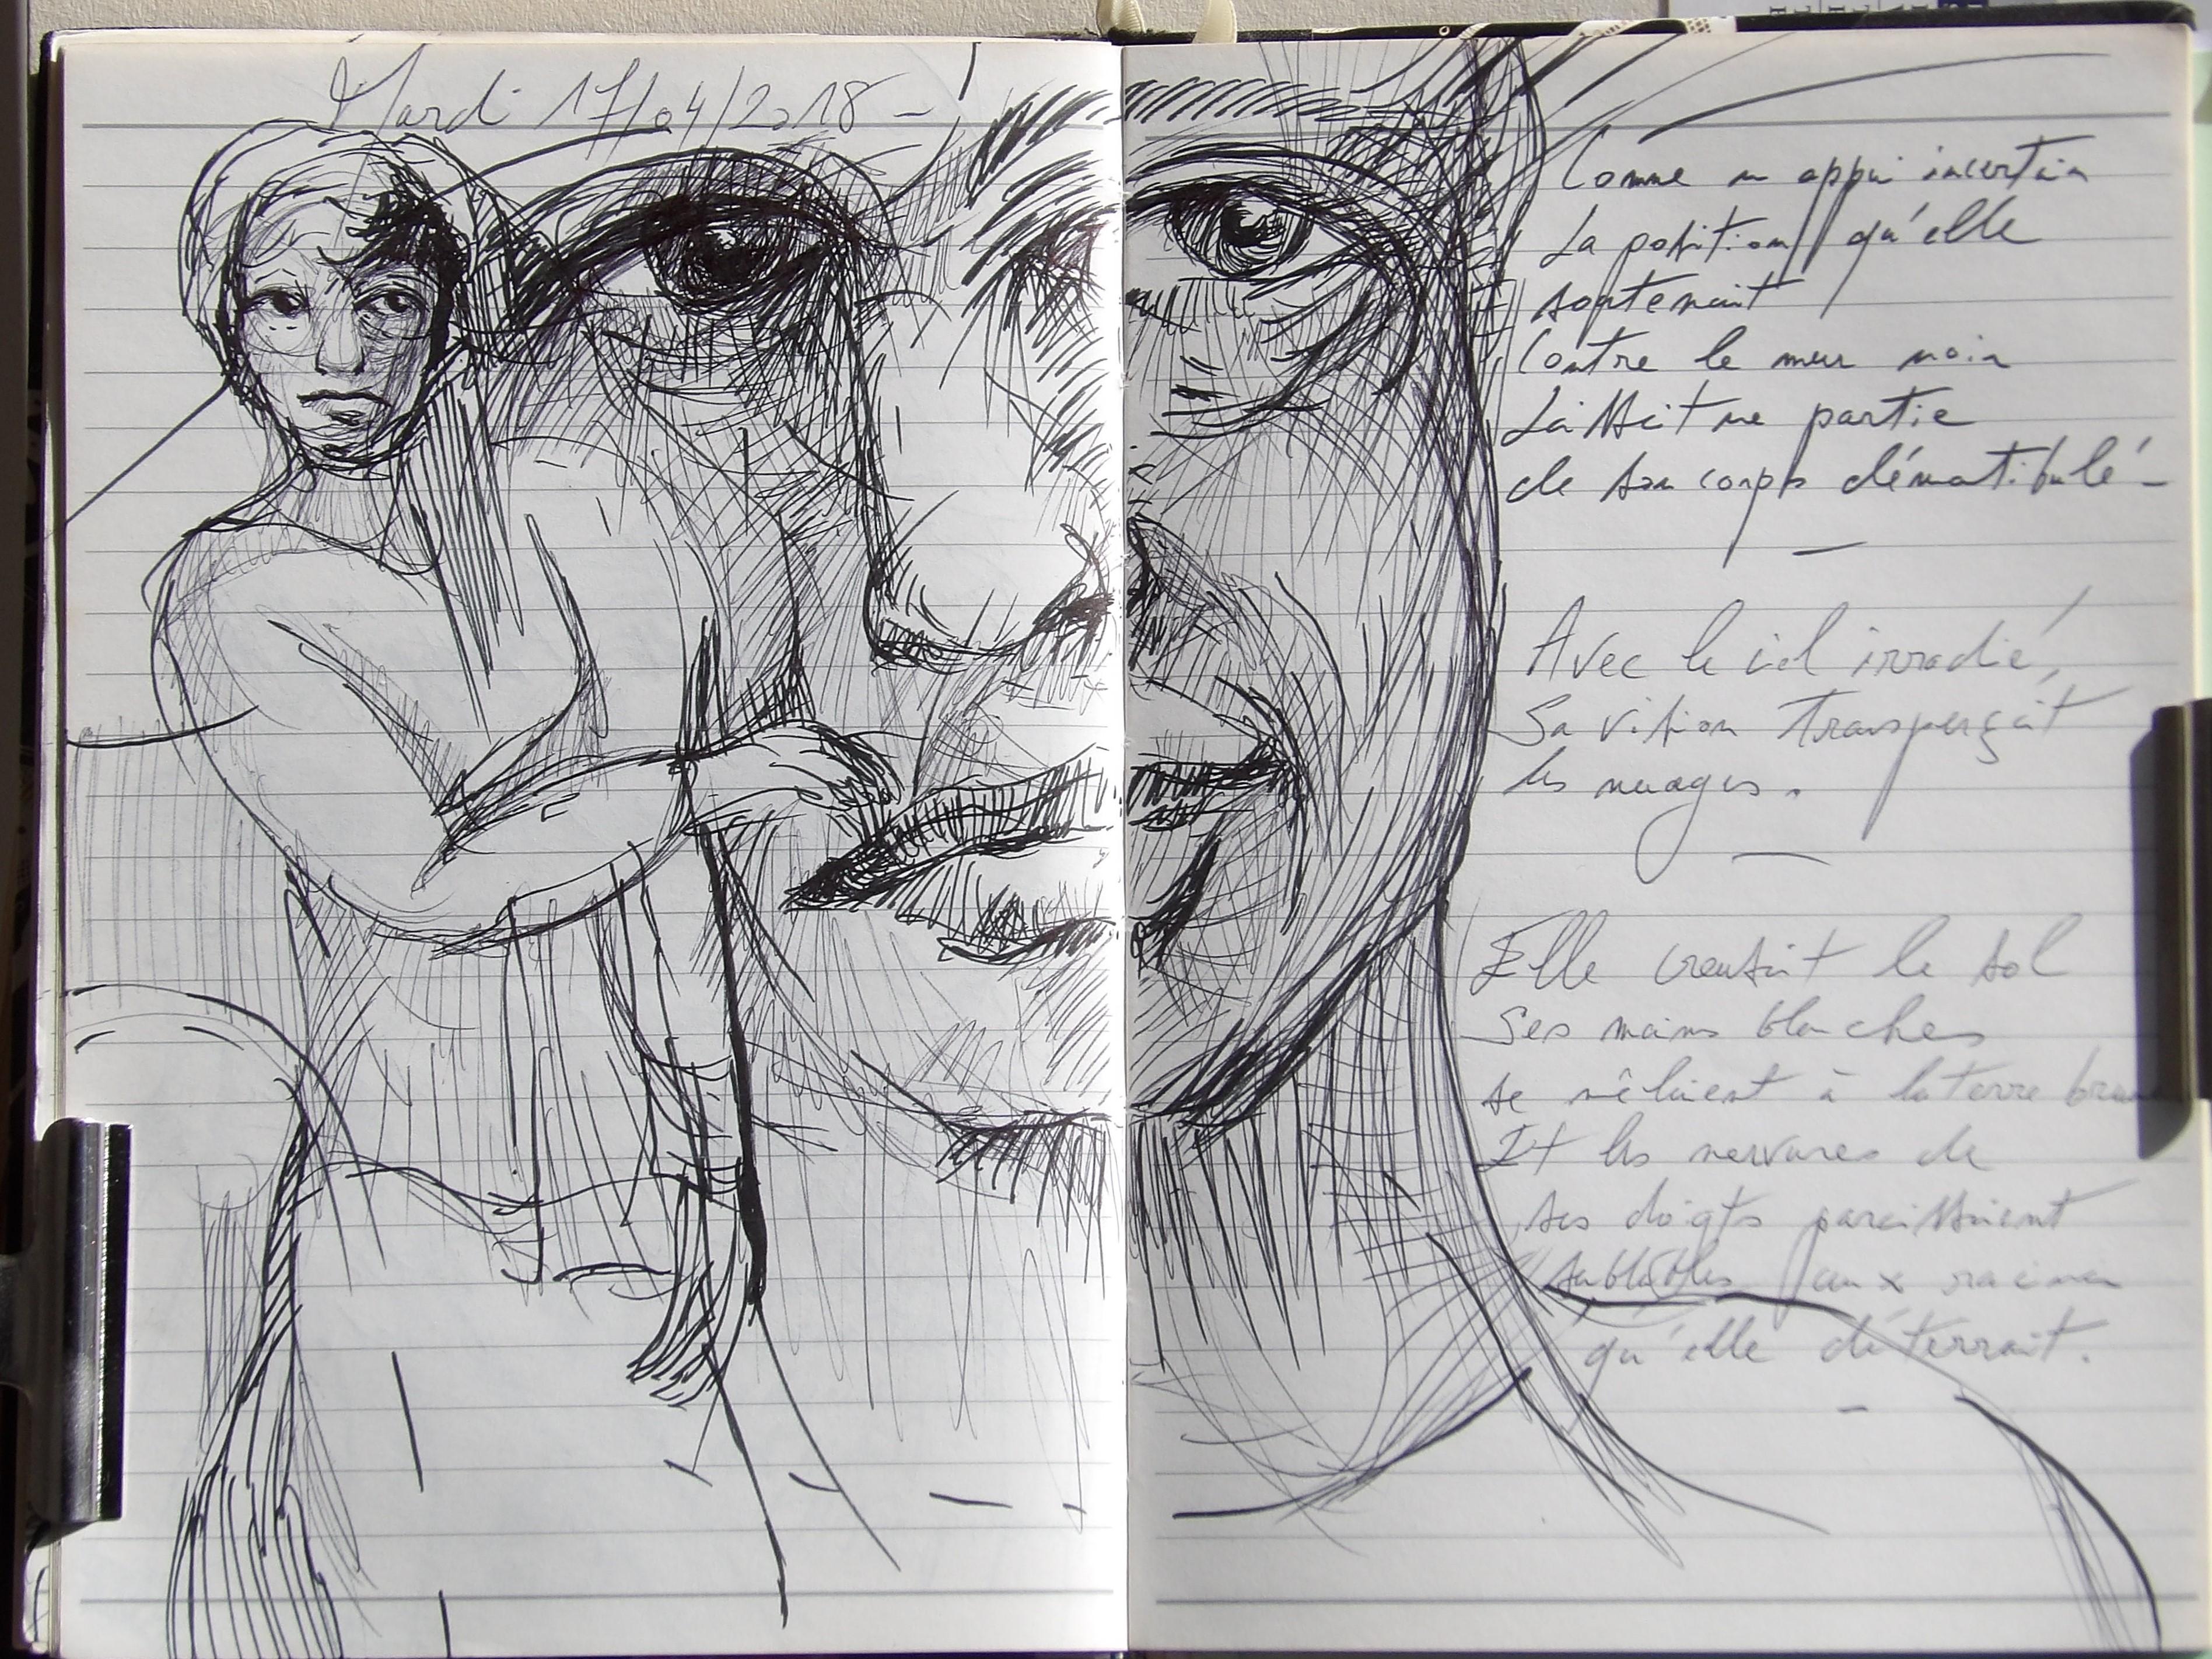 Mardi 17/04/2018 -
Comme un appui incertain
La position qu'elle
soutenait
Contre le mur noir
Laissait une partie
de son corps démantibulé -
Avec le ciel irradié,
Sa vision transperçait
les nuages.
Elle creusait le sol
Ses mains blanches
se mêlaient à la terre
Et les nervures de
ses doigts paraissaient
aux racines
qu'elle déterrait.